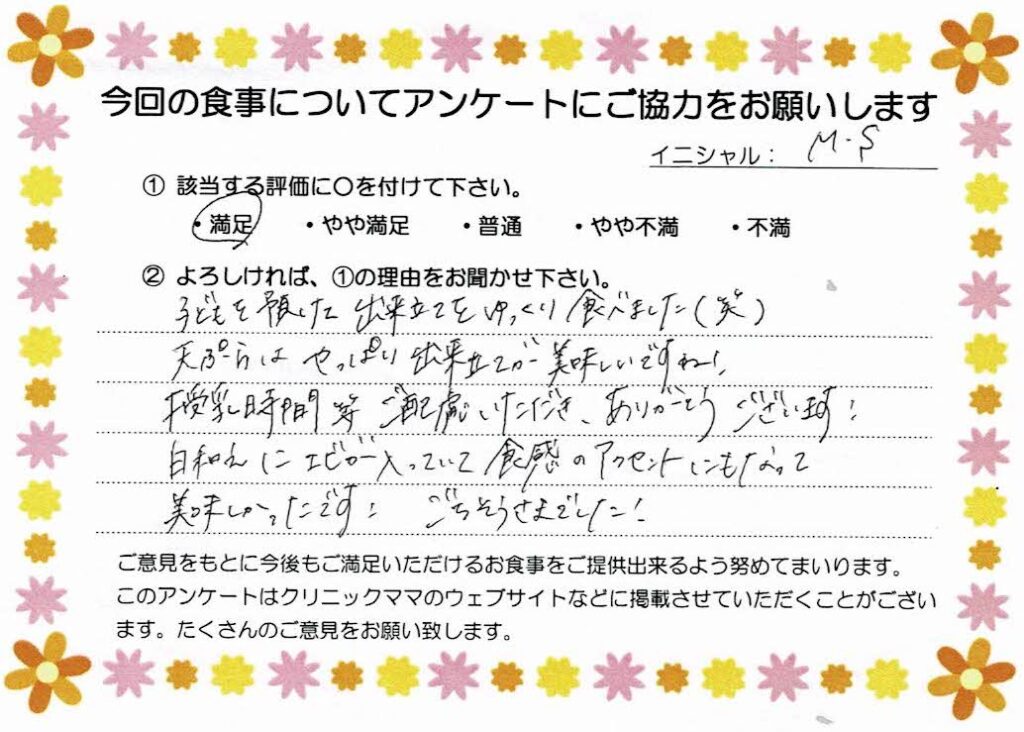 今回の食事についてアンケートにご協力をお願いします
イニシャル： M.S
① 該当する評価に〇を付けて下さい。
・満足 ・やや満足 ・普通 ・やや不満 ・不満
② よろしければ、①の理由をお聞かせ下さい。
子どもを預けた 出来立てを ゆっくり 食べました(笑)
天ぷらは やっぱり 出来立てが 美味しいですね!
授乳時間 等 ご配慮いただき、ありがとう ございます!
白和えに エビが 入っていて 食感の アクセントにもなって
美味しかったです! ごちそうさまでした!
ご意見をもとに今後もご満足いただけるお食事をご提供出来るよう努めてまいります。
このアンケートはクリニックママのウェブサイトなどに掲載させていただくことがござい
ます。たくさんのご意見をお願い致します。